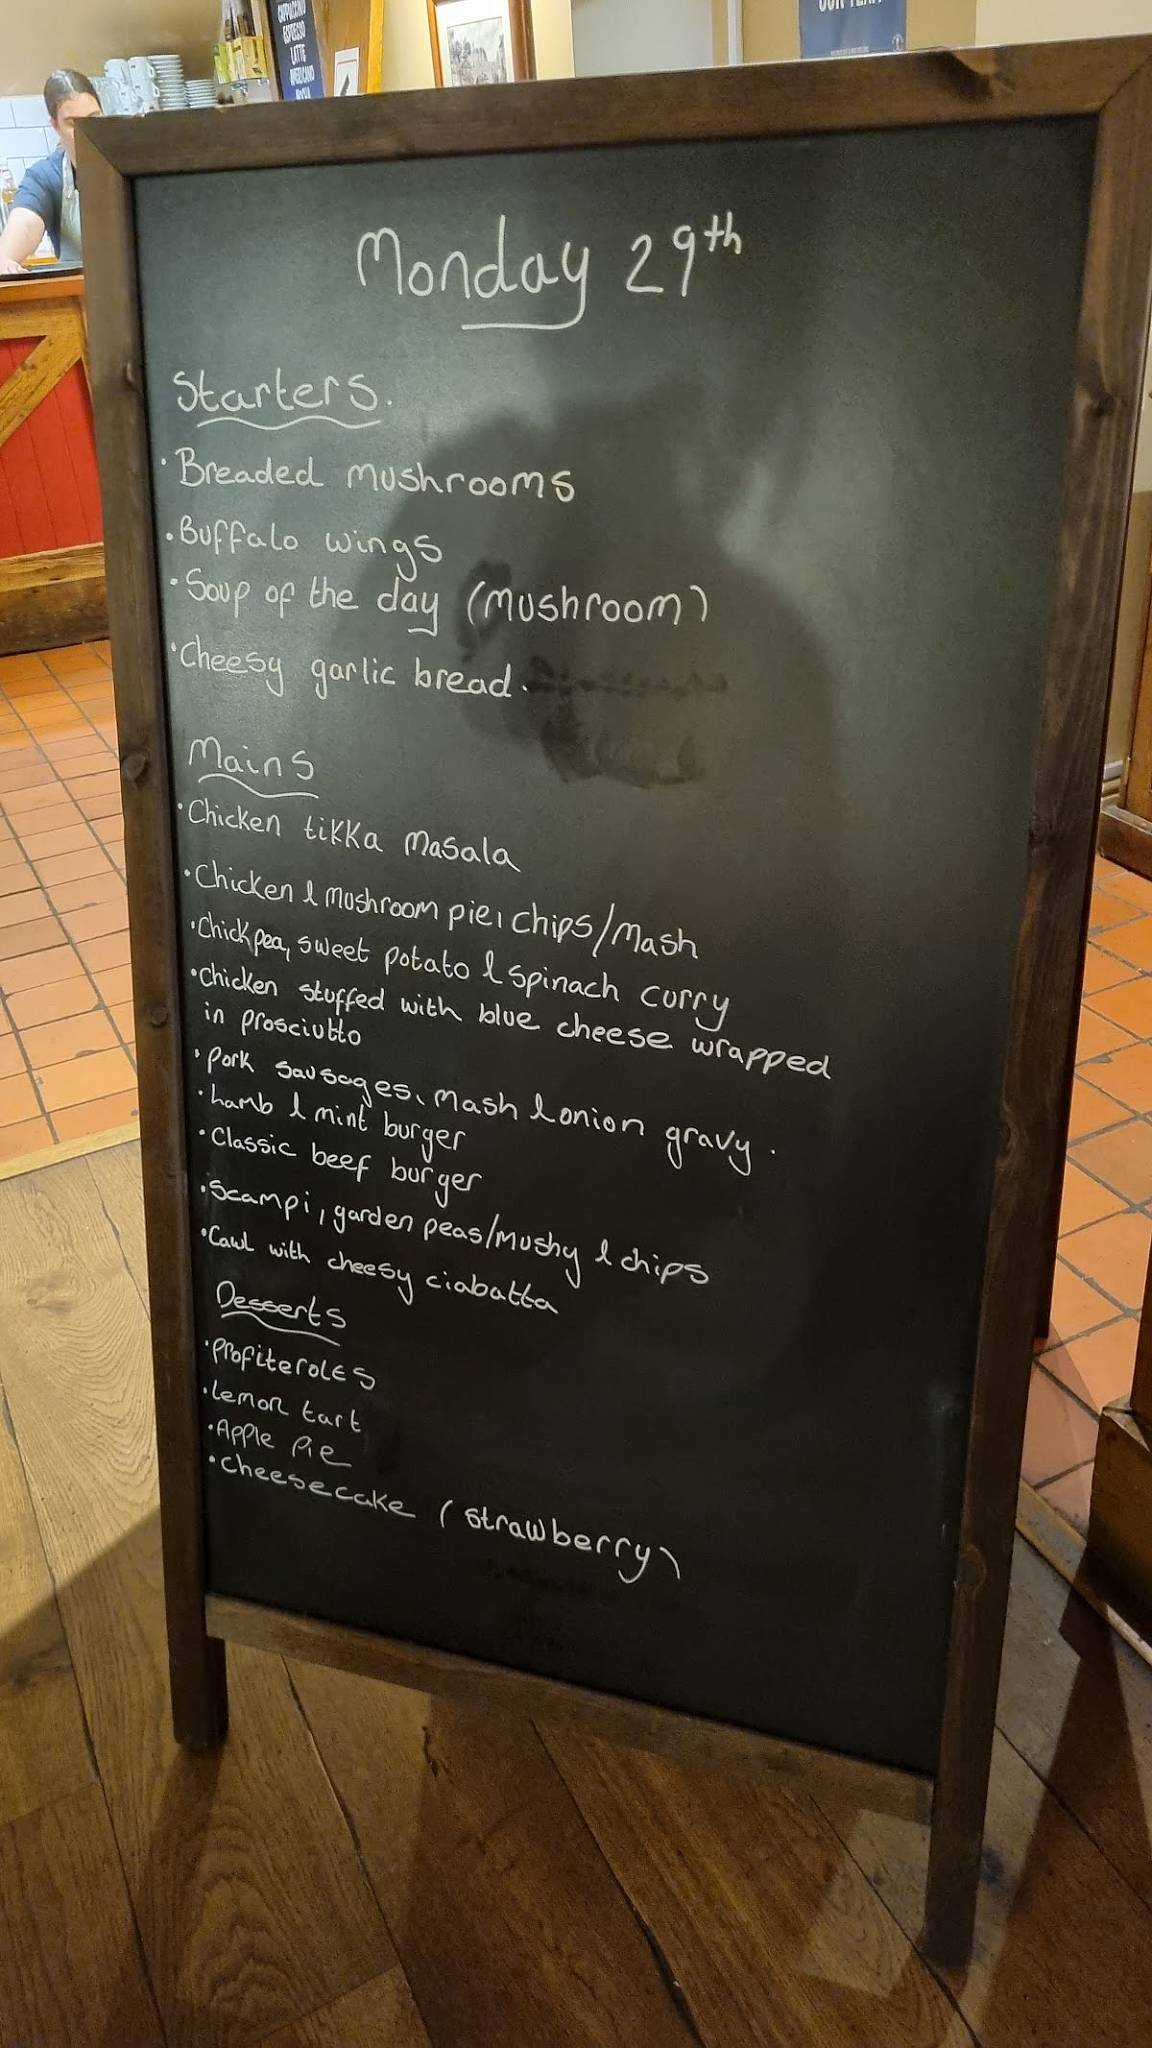 CAPPUCCINO
ESPRESSO
LATTE
AMERICANO
Monday 29th
Starters.
·Breaded mushrooms
·Buffalo wings
·Soup of the day (mushroom)
·Cheesy garlic bread.
Mains
·Chicken tikka masala
·Chicken & mushroom pie, chips/mash
·Chickpea, sweet potato & spinach curry
·Chicken stuffed with blue cheese wrapped
in prosciutto
·Pork sausages, mash & onion gravy.
·Lamb & mint burger
·Classic beef burger
·Scampi, garden peas/mushy & chips
·Cawl with cheesy ciabatta
Desserts
·Profiteroles
·Lemon tart
·Apple Pie
·Cheesecake (strawberry)